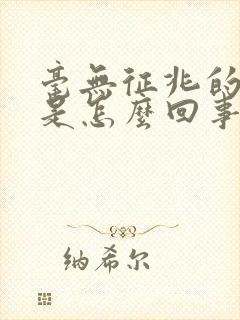 毫無征兆的
是怎麼回事
纳希尔